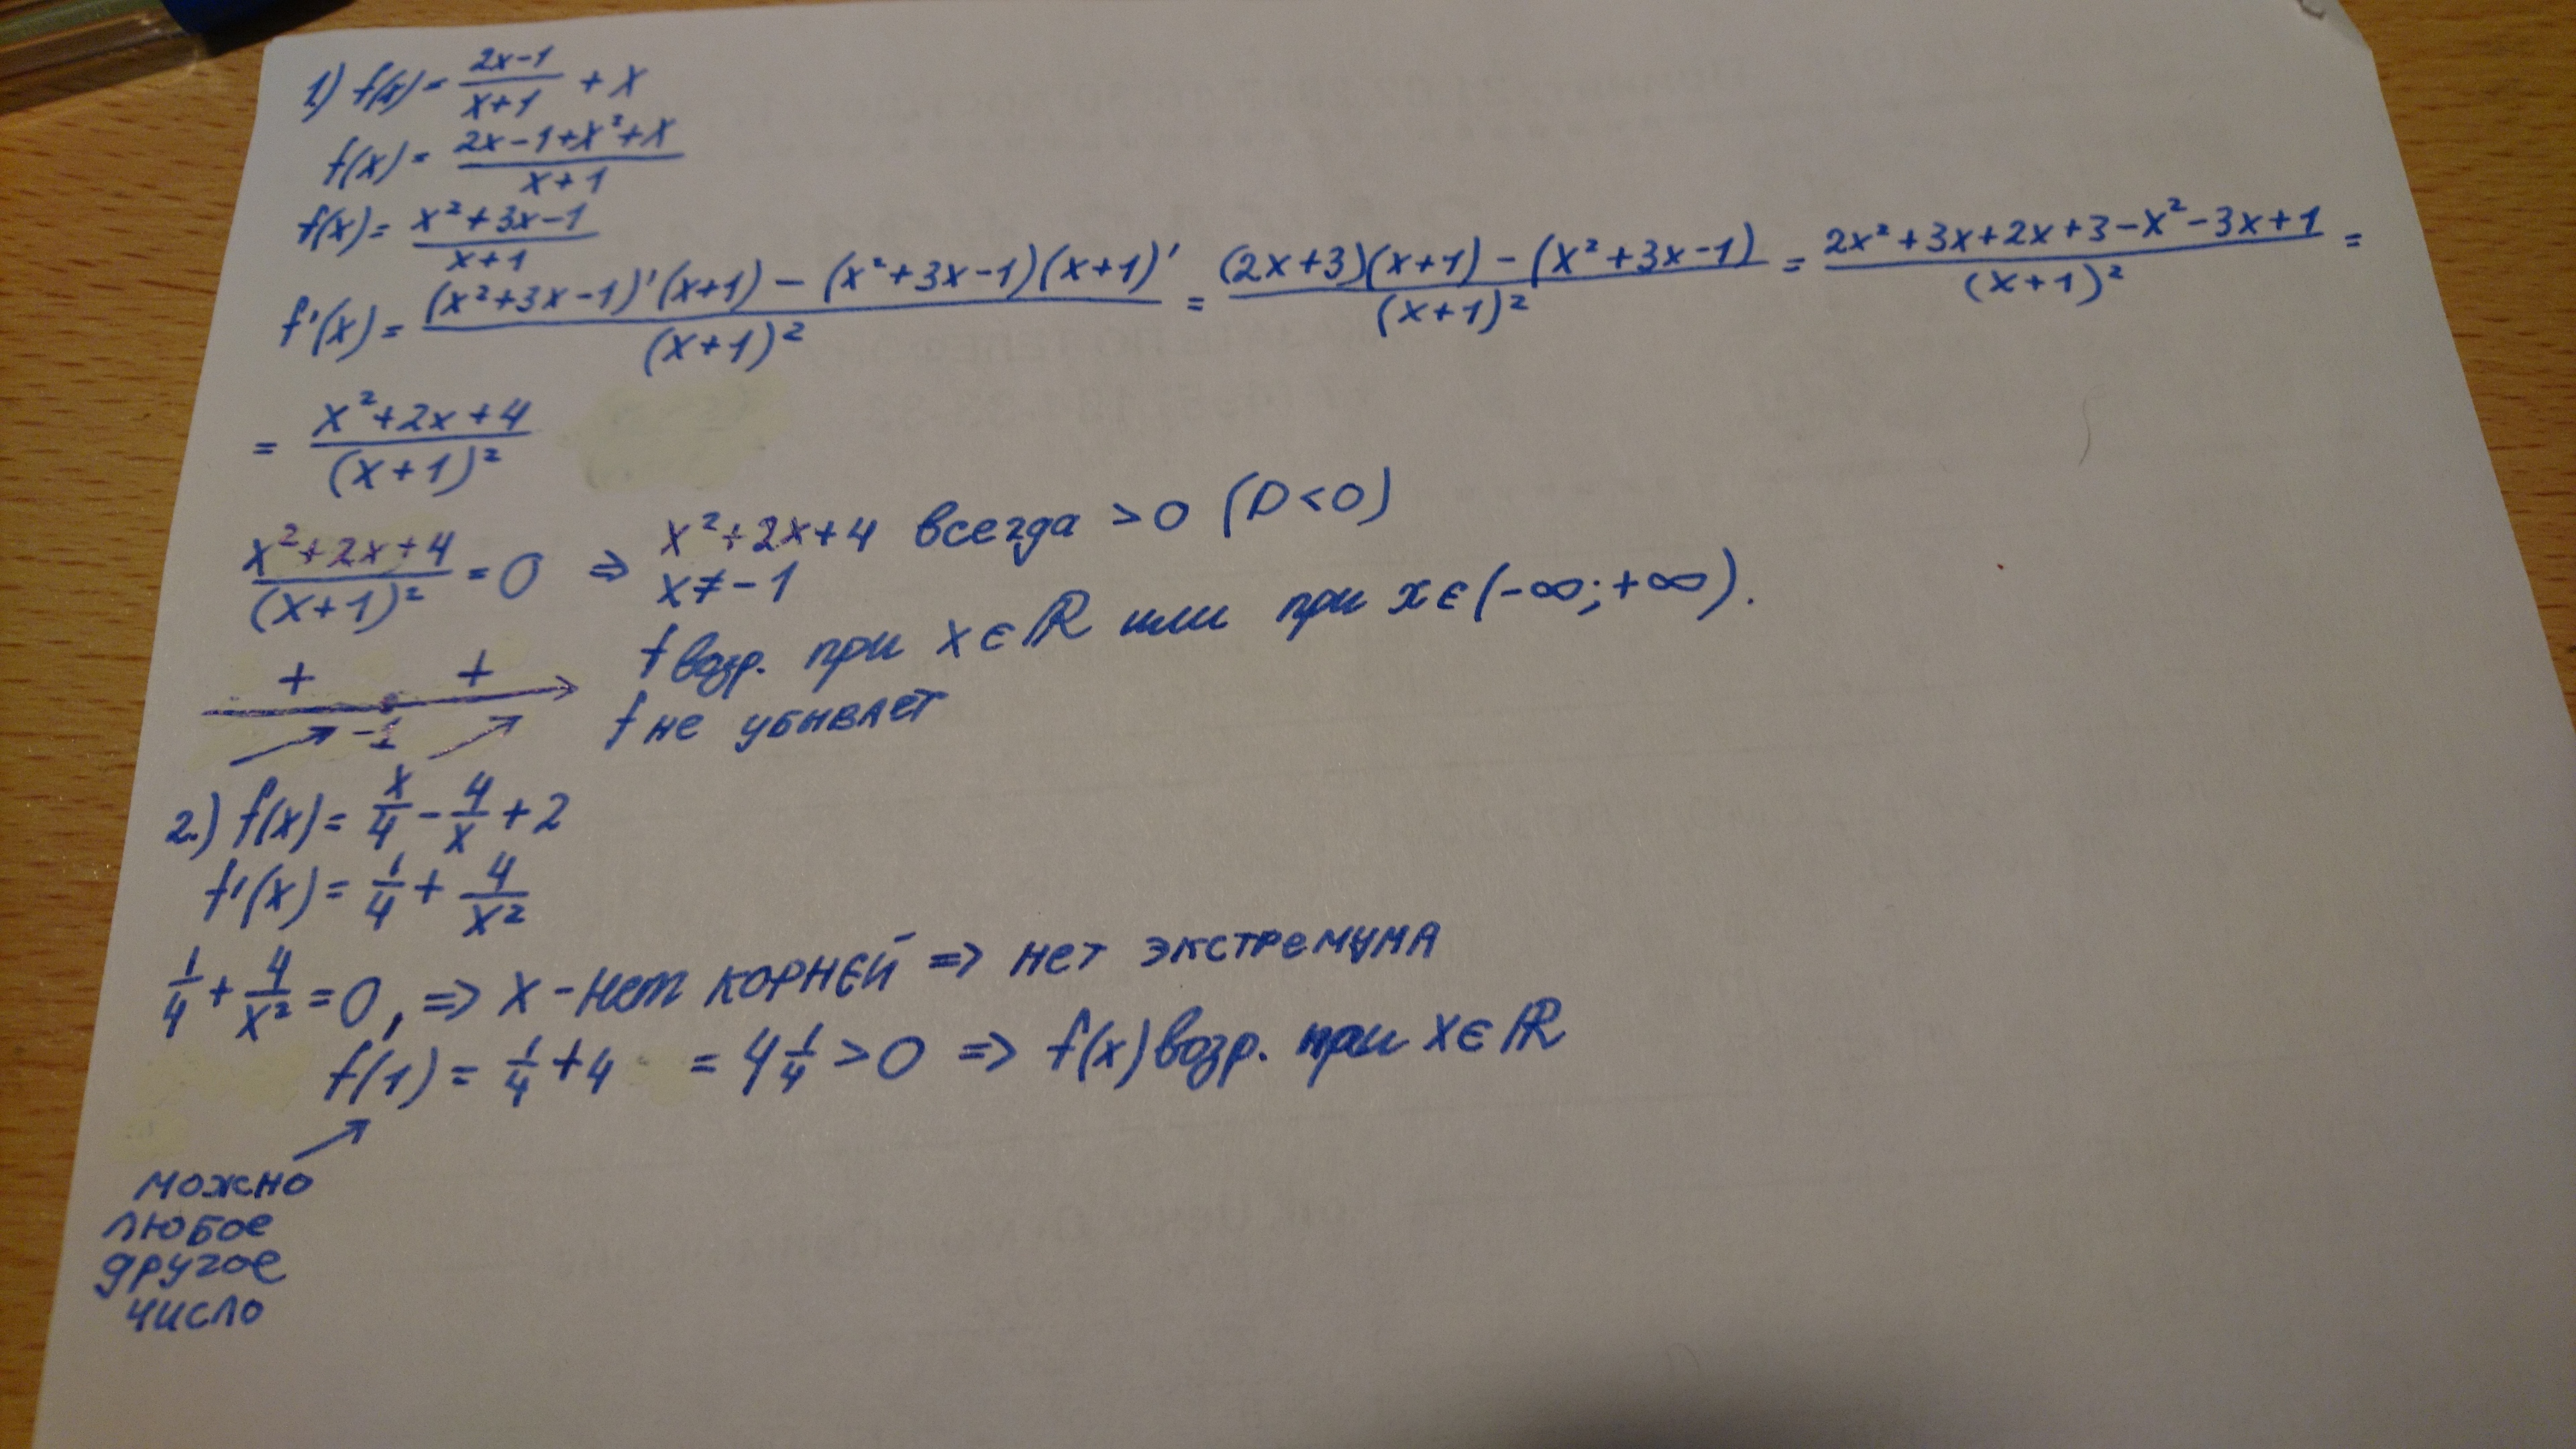 1) f(x) = (2x-1)/(x+1) + x
f(x) = (2x-1+x²+x)/(x+1)
f(x) = (x²+3x-1)/(x+1)
f'(x) = ((x²+3x-1)'(x+1) - (x²+3x-1)(x+1)')/(x+1)² = ((2x+3)(x+1) - (x²+3x-1))/(x+1)² = (2x²+3x+2x+3-x²-3x+1)/(x+1)² =
= (x²+2x+4)/(x+1)²
(x²+2x+4)/(x+1)² = 0 ⇒ x²+2x+4 всегда >0 (D<0)
x≠-1
f возр. при x∈ℝ или при x∈(-∞;+∞).
+ +
-1
f не убывает
2.) f(x) = x/4 - 4/x + 2
f'(x) = 1/4 + 4/x²
1/4 + 4/x² = 0, ⇒ x - нет корней ⇒ нет экстремума
f(1) = 1/4 + 4 = 4 1/4 > 0 ⇒ f(x) возр. при x∈ℝ
можно
любое
другое
число